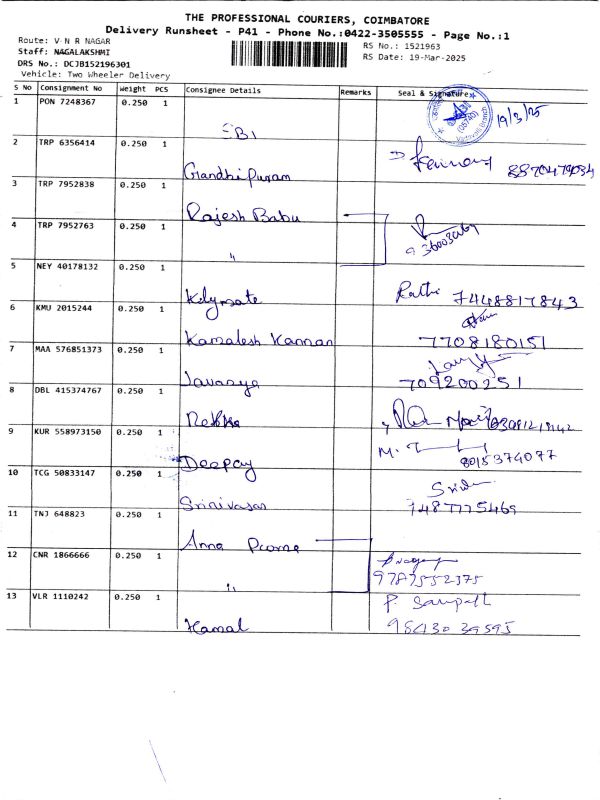 THE PROFESSIONAL COURIERS, COIMBATORE
Delivery Runsheet - P41 - Phone No.:0422-3505555 - Page No.:1
Route: V N R NAGAR
RS No.: 1521963
Staff: NAGALAKSHMI
RS Date: 19-Mar-2025
DRS No.: DCJB152196301
Vehicle: Two Wheeler Delivery
S No Consignment No Weight PCS Consignee Details Remarks Seal & Signature
1 PON 7248367 0.250 1 SBI 19/3/25
2 TRP 6356414 0.250 1 Gandhipuram 8870479034
3 TRP 7952838 0.250 1 Rajesh Babu
4 TRP 7952763 0.250 1 "
5 NEY 40178132 0.250 1 Rathi 7448817843
6 KMU 2015244 0.250 1 Kamalesh Kannan 7708180151
7 MAA 576851373 0.250 1 Lavanya 709200251
8 DBL 415374767 0.250 1
9 KUR 558973150 0.250 1 Deepay 8015374077
10 TCG 50833147 0.250 1 Srinivasan
11 TNJ 648823 0.250 1 Anna
12 CNR 1866666 0.250 1 " 9787552375
13 VLR 1110242 0.250 1 Kamal P. Sampath